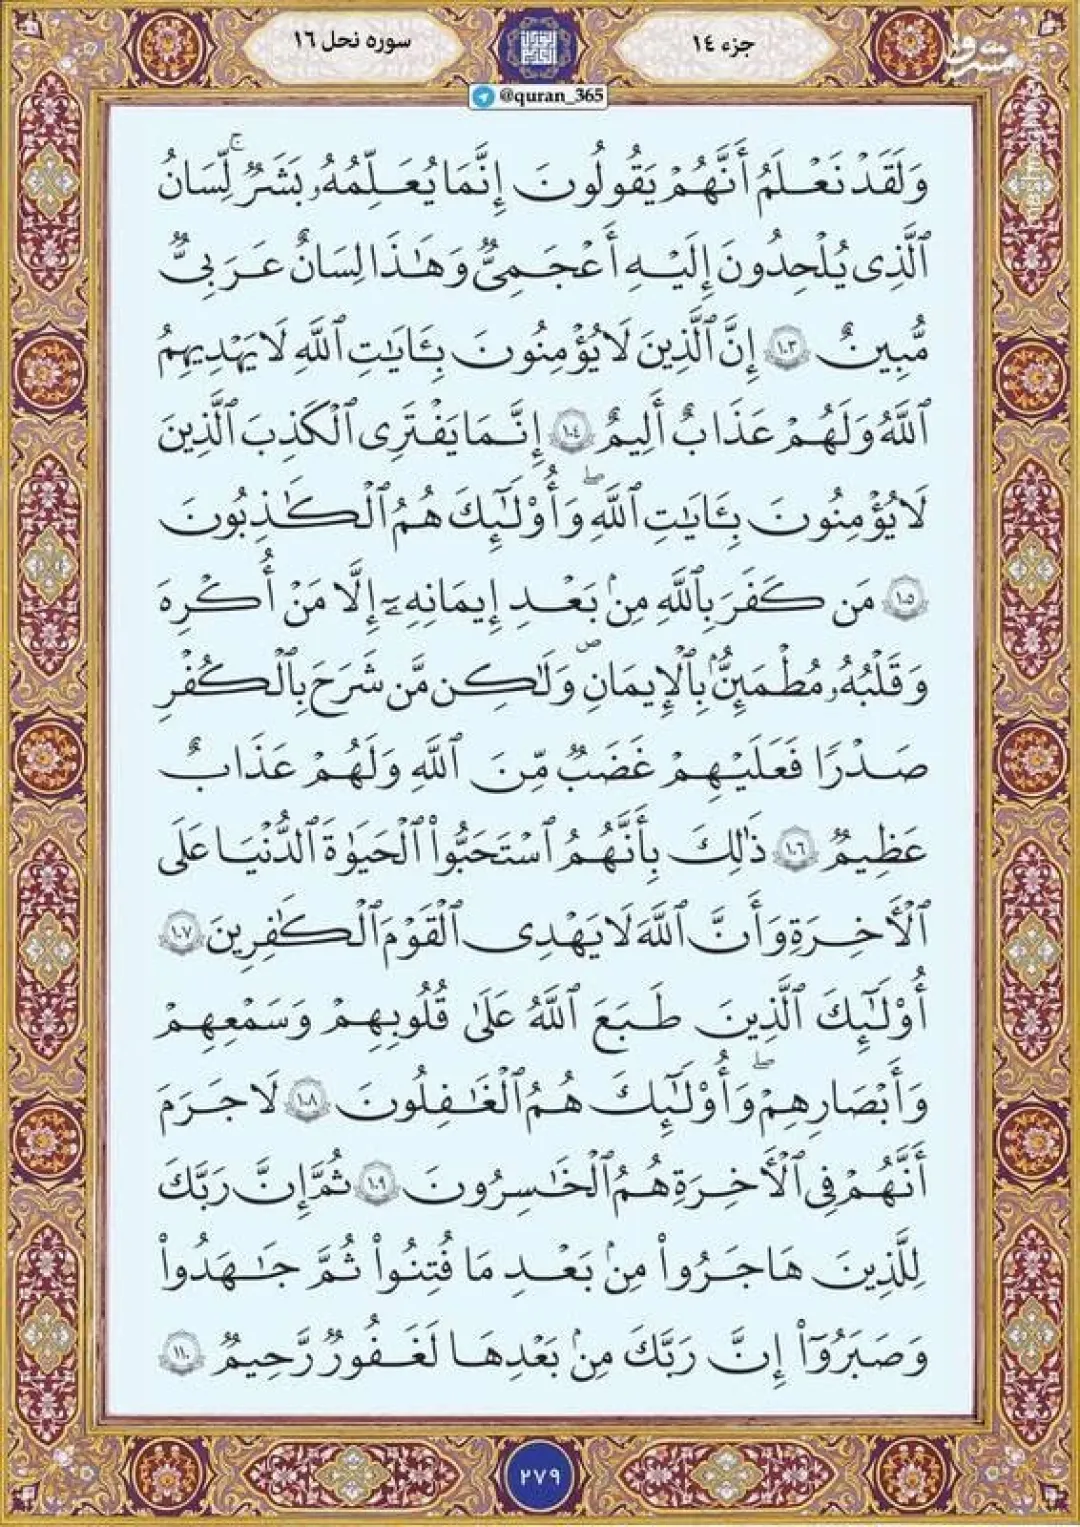 جزء ۱٤
سوره نحل ۱٦
@quran_365
وَلَقَدْ نَعْلَمُ أَنَّهُمْ يَقُولُونَ إِنَّمَا يُعَلِّمُهُۥ بَشَرٌۚ لِّسَانُ
ٱلَّذِى يُلْحِدُونَ إِلَيْهِ أَعْجَمِىٌّ وَهَـٰذَا لِسَانٌ عَرَبِىٌّ
مُّبِينٌ ۝١٠٣ إِنَّ ٱلَّذِينَ لَا يُؤْمِنُونَ بِـَٔايَـٰتِ ٱللَّهِ لَا يَهْدِيهِمُ
ٱللَّهُ وَلَهُمْ عَذَابٌ أَلِيمٌ ۝١٠٤ إِنَّمَا يَفْتَرِى ٱلْكَذِبَ ٱلَّذِينَ
لَا يُؤْمِنُونَ بِـَٔايَـٰتِ ٱللَّهِۖ وَأُوْلَـٰٓئِكَ هُمُ ٱلْكَـٰذِبُونَ
۝١٠٥ مَن كَفَرَ بِٱللَّهِ مِنۢ بَعْدِ إِيمَـانِهِۦٓ إِلَّا مَنْ أُكْرِهَ
وَقَلْبُهُۥ مُطْمَئِنٌّۢ بِٱلْإِيمَانِ وَلَـٰكِن مَّن شَرَحَ بِٱلْكُفْرِ
صَدْرًا فَعَلَيْهِمْ غَضَبٌ مِّنَ ٱللَّهِ وَلَهُمْ عَذَابٌ
عَظِيمٌ ۝١٠٦ ذَٰلِكَ بِأَنَّهُمُ ٱسْتَحَبُّواْ ٱلْحَيَوٰةَ ٱلدُّنْيَا عَلَى
ٱلْأَخِرَةِ وَأَنَّ ٱللَّهَ لَا يَهْدِى ٱلْقَوْمَ ٱلْكَـٰفِرِينَ ۝١٠٧
أُوْلَـٰٓئِكَ ٱلَّذِينَ طَبَعَ ٱللَّهُ عَلَىٰ قُلُوبِهِمْ وَسَمْعِهِمْ
وَأَبْصَارِهِمْۖ وَأُوْلَـٰٓئِكَ هُمُ ٱلْغَـٰفِلُونَ ۝١٠٨ لَا جَرَمَ
أَنَّهُمْ فِى ٱلْأَخِرَةِ هُمُ ٱلْخَـٰسِرُونَ ۝١٠٩ ثُمَّ إِنَّ رَبَّكَ
لِلَّذِينَ هَاجَرُواْ مِنۢ بَعْدِ مَا فُتِنُواْ ثُمَّ جَـٰهَدُواْ
وَصَبَرُوٓاْ إِنَّ رَبَّكَ مِنۢ بَعْدِهَا لَغَفُورٌ رَّحِيمٌ ۝١١٠
۲۷۹